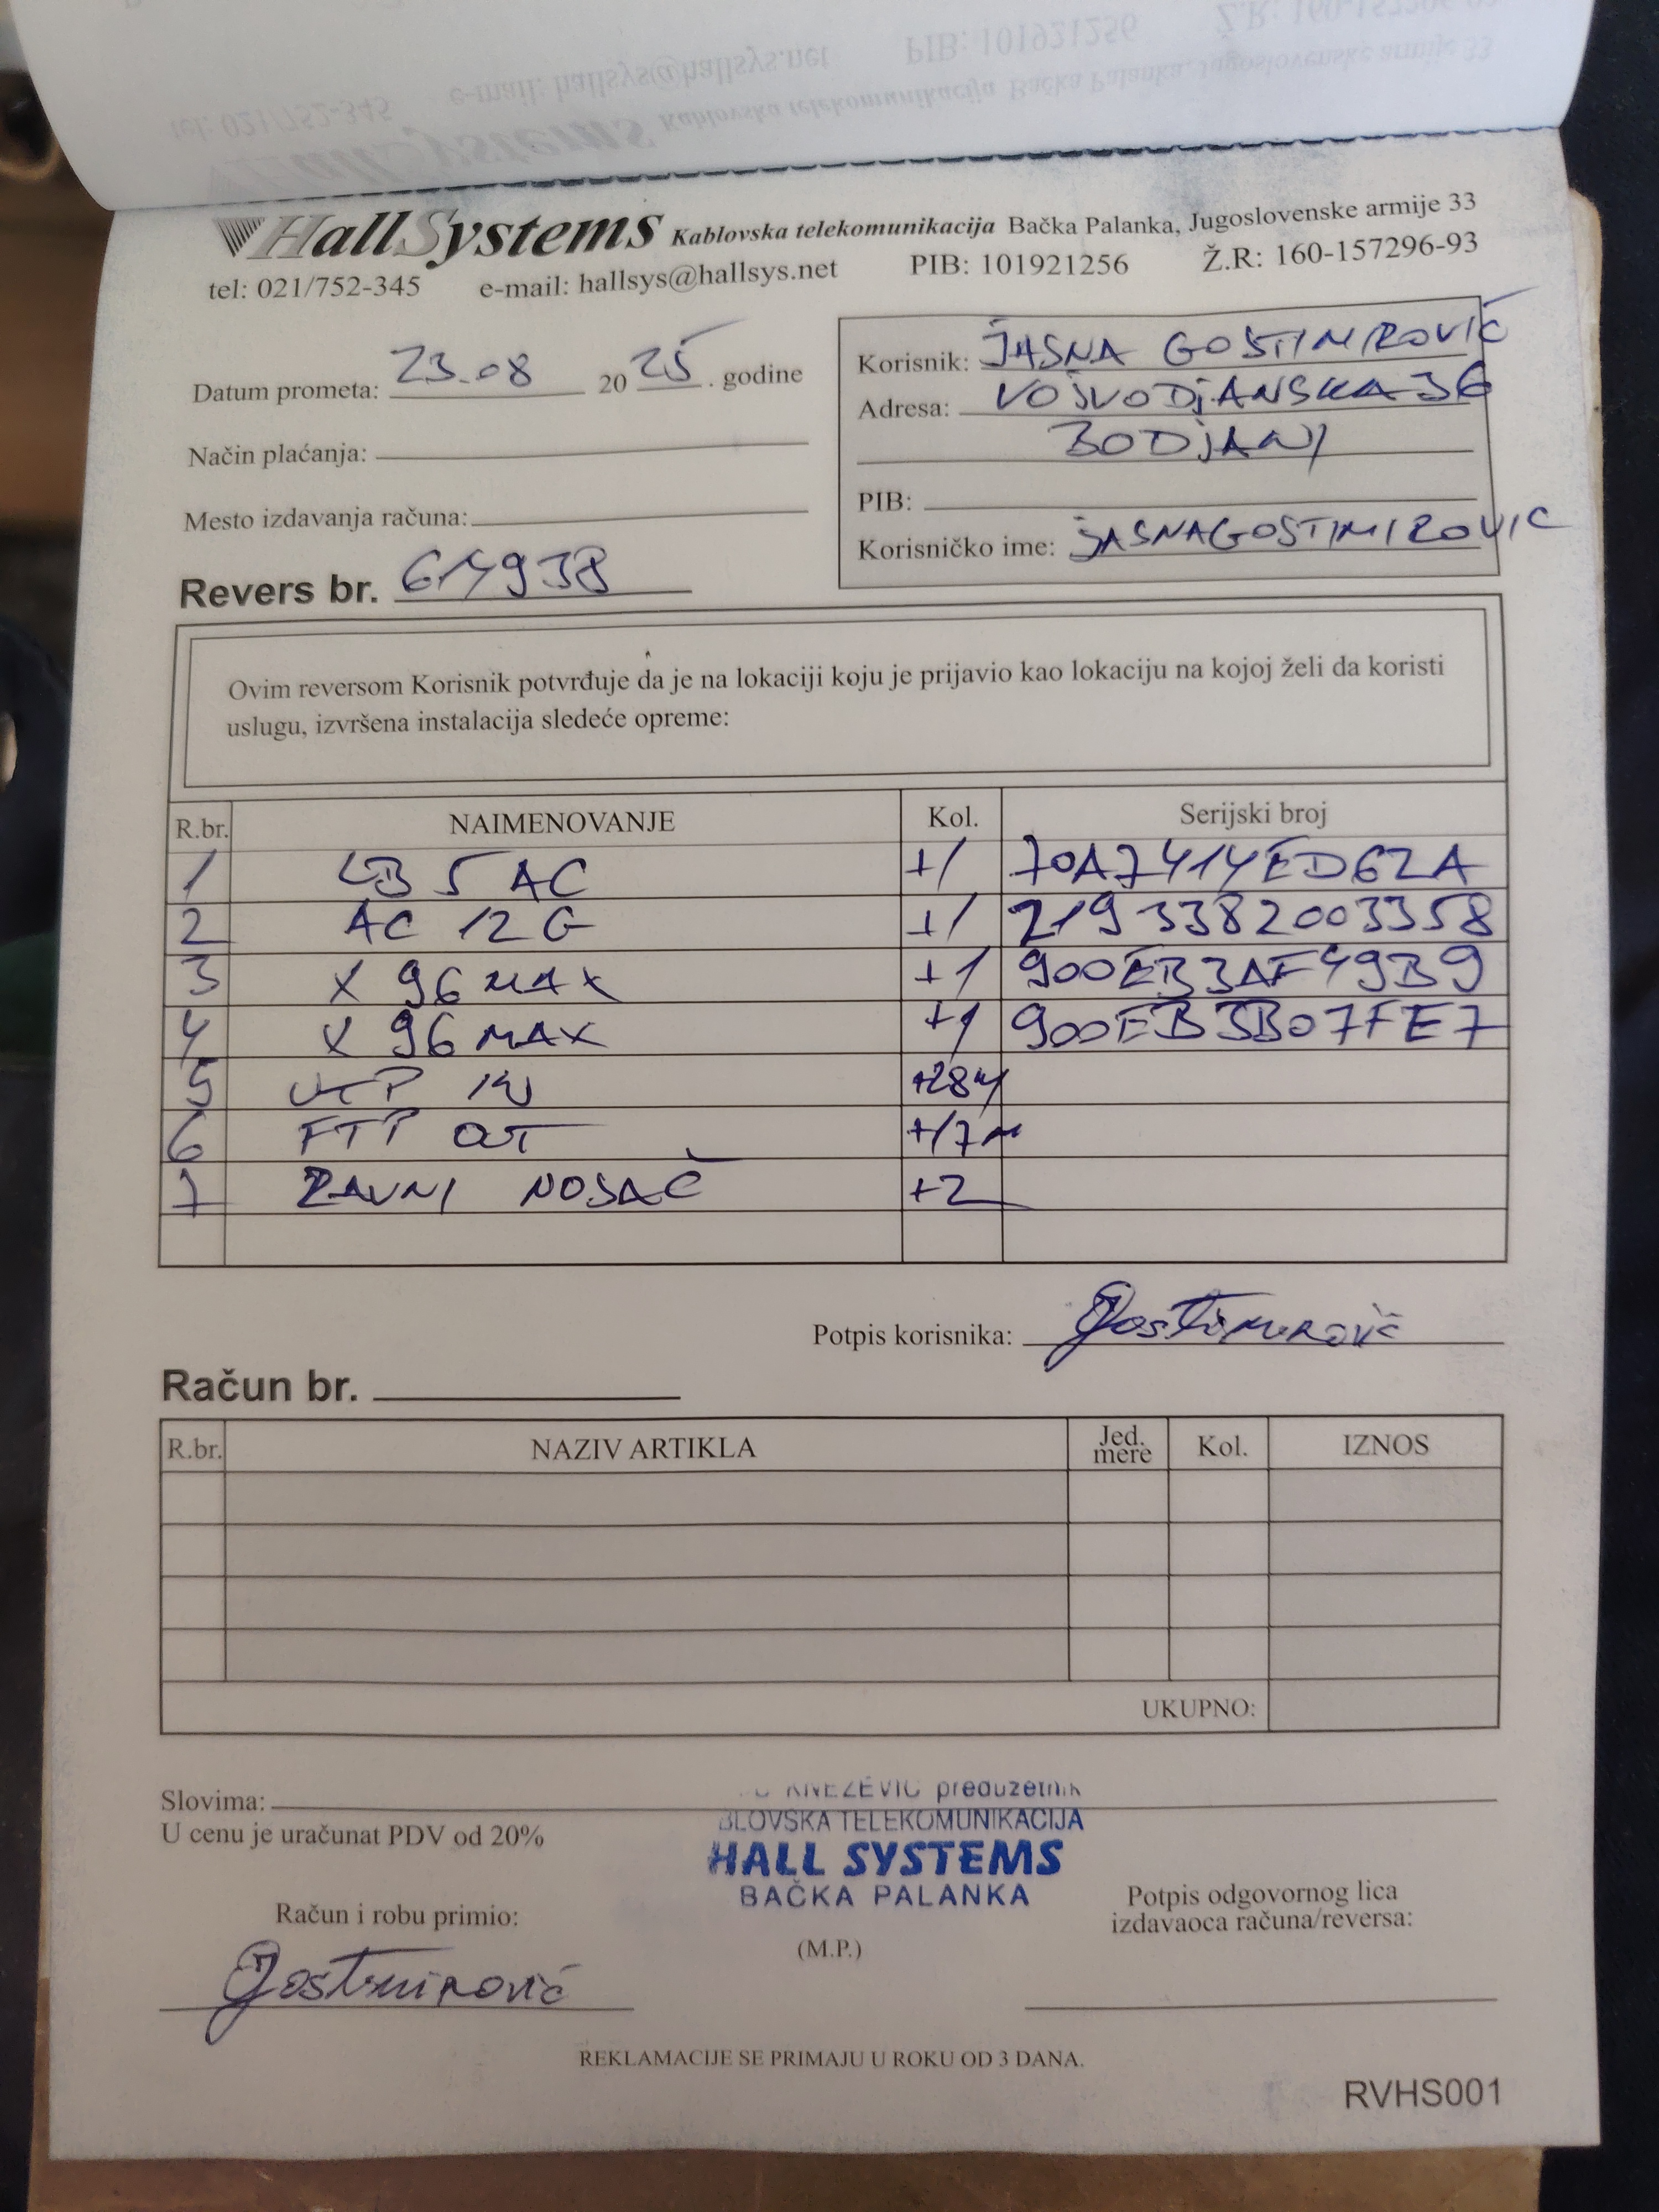 HallSystems Kablovska telekomunikacija Bačka Palanka, Jugoslovenske armije 33
tel: 021/752-345 e-mail: hallsys@hallsys.net PIB: 101921256 Ž.R: 160-157296-93
Datum prometa: 23.08 2025. godine
Način plaćanja:
Mesto izdavanja računa:
Revers br. 614938
Korisnik: JASNA GOSTIMIROVIĆ
Adresa: VOJVODjANSKA 36
BODjANI
PIB:
Korisničko ime: JASNAGOSTIMIROVIC
Ovim reversom Korisnik potvrđuje da je na lokaciji koju je prijavio kao lokaciju na kojoj želi da koristi
uslugu, izvršena instalacija sledeće opreme:
R.br. NAIMENOVANJE Kol. Serijski broj
1 LB 5 AC +1 70A7414ED62A
2 AC 12 G +1 2193382003358
3 X 96 MAX +1 900EB3AF49B9
4 X 96 MAX +1 900EB3B07FE7
5 UTP IN +28m
6 FTP OUT +17m
7 RAVNI NOSAČ +2
Potpis korisnika: Gostimirović
Račun br.
R.br. NAZIV ARTIKLA Jed. mere Kol. IZNOS
UKUPNO:
Slovima:
U cenu je uračunat PDV od 20%
KNEZEVIC preduzetnik
BLOVSKA TELEKOMUNIKACIJA
HALL SYSTEMS
BAČKA PALANKA
Račun i robu primio:
Gostimirović
(M.P.)
Potpis odgovornog lica
izdavaoca računa/reversa:
REKLAMACIJE SE PRIMAJU U ROKU OD 3 DANA.
RVHS001